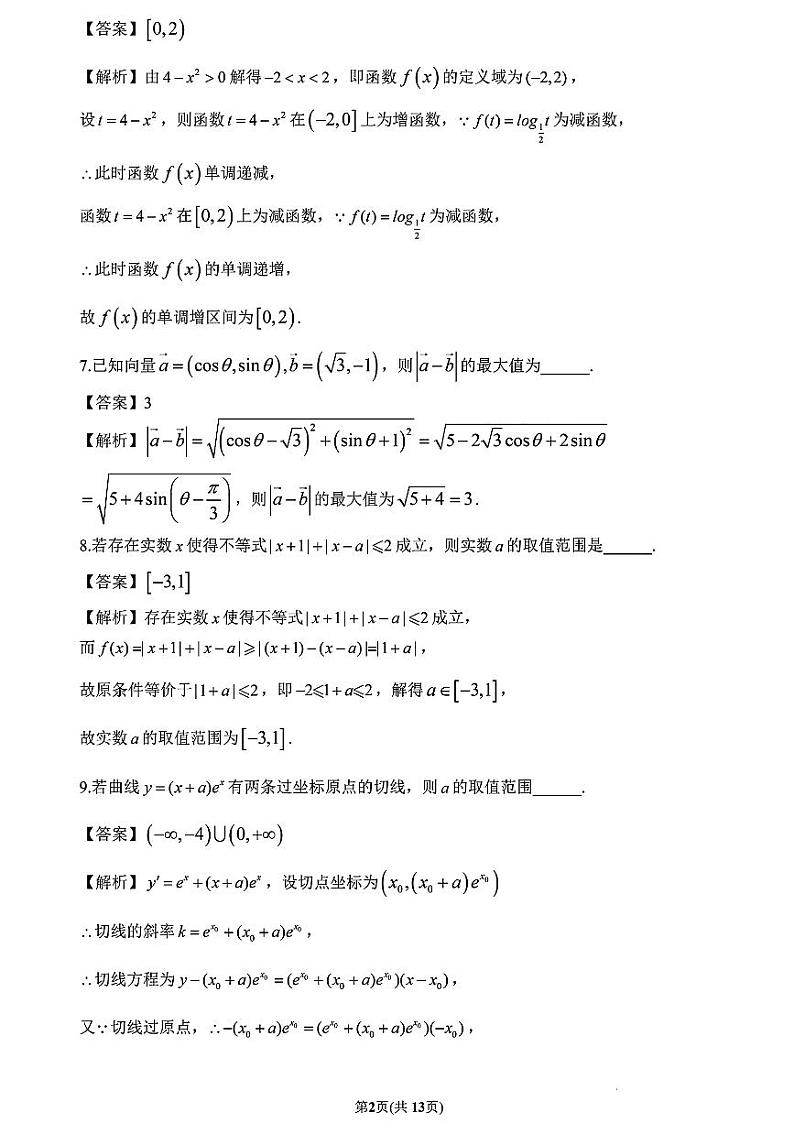 【答案】[0,2)
【解析】由 4 − x² > 0 解得 −2 < x < 2，即函数 f(x) 的定义域为 (−2,2)，
设 t = 4 − x²，则函数 t = 4 − x² 在 (−2,0] 上为增函数，∵ f(t) = log_{1/2} t 为减函数，
∴此时函数 f(x) 单调递减，
函数 t = 4 − x² 在 [0,2) 上为减函数，∵ f(t) = log_{1/2} t 为减函数，
∴此时函数 f(x) 的单调递增，
故 f(x) 的单调增区间为 [0,2).
7.已知向量 a⃗ = (cosθ,sinθ),b⃗ = (√3,−1)，则 |a⃗ − b⃗| 的最大值为______.
【答案】3
【解析】|a⃗ − b⃗| = √((cosθ − √3)² + (sinθ + 1)²) = √(5 − 2√3 cosθ + 2sinθ)
= √(5 + 4sin(θ − π/3))，则 |a⃗ − b⃗| 的最大值为 √(5+4) = 3.
8.若存在实数 x 使得不等式 | x + 1 | + | x − a | ⩽ 2 成立，则实数 a 的取值范围是______.
【答案】[−3,1]
【解析】存在实数 x 使得不等式 | x + 1 | + | x − a | ⩽ 2 成立，
而 f(x) =| x + 1 | + | x − a | ⩾ | (x + 1) − (x − a) |=| 1 + a |，
故原条件等价于 | 1 + a | ⩽ 2，即 −2 ⩽ 1 + a ⩽ 2，解得 a ∈ [−3,1]，
故实数 a 的取值范围为 [−3,1].
9.若曲线 y = (x + a)eˣ 有两条过坐标原点的切线，则 a 的取值范围______.
【答案】(−∞,−4)∪(0,+∞)
【解析】y′ = eˣ + (x + a)eˣ，设切点坐标为 (x₀,(x₀ + a)e^{x₀})
∴切线的斜率 k = e^{x₀} + (x₀ + a)e^{x₀}，
∴切线方程为 y − (x₀ + a)e^{x₀} = (e^{x₀} + (x₀ + a)e^{x₀})(x − x₀)，
又∵切线过原点，∴−(x₀ + a)e^{x₀} = (e^{x₀} + (x₀ + a)e^{x₀})(−x₀)，
第2页(共 13页)